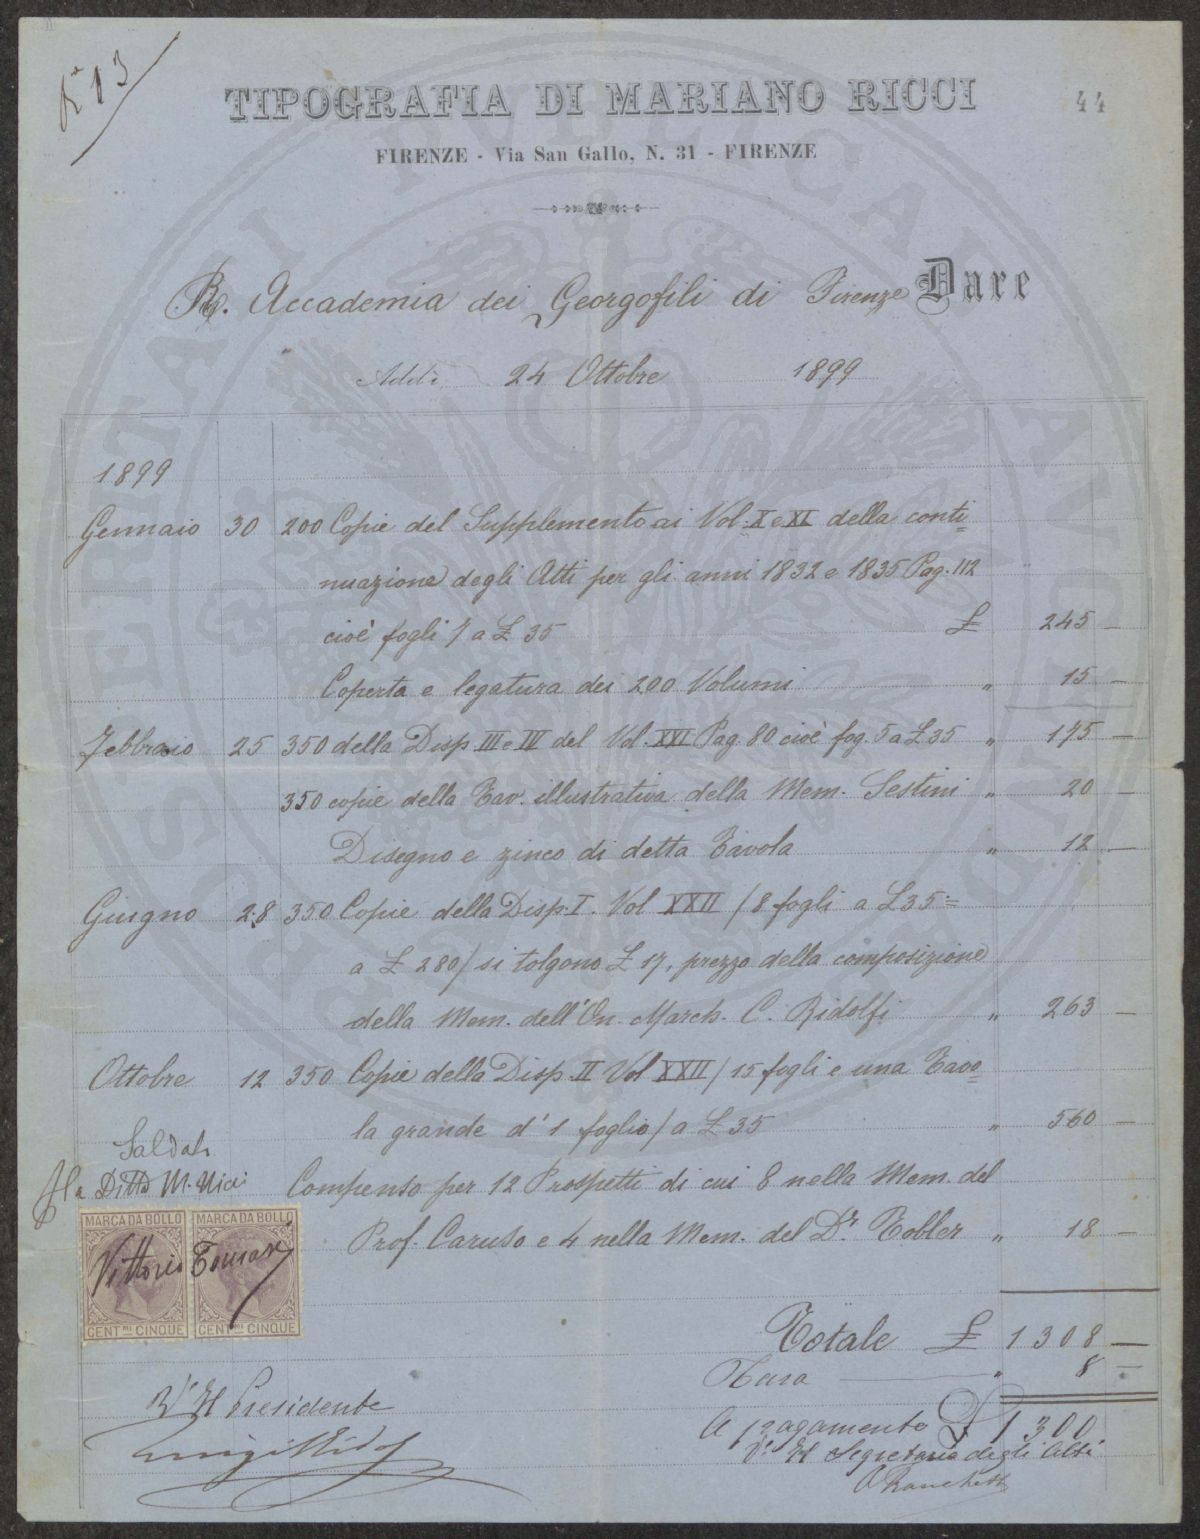 N° 13
TIPOGRAFIA DI MARIANO RICCI
44
FIRENZE - Via San Gallo, N. 31 - FIRENZE
R. Accademia dei Georgofili di Firenze Dare
Addì 24 Ottobre 1899
1899
Gennaio 30 200 Copie del Supplemento ai Vol. X e XI della conti=
nuazione degli Atti per gli anni 1832 e 1835 Pag. 112
cioè fogli 7 a £ 35 £ 245 —
Coperta e legatura dei 200 Volumi " 15 —
Febbraio 25 350 della Disp. III e IV del Vol. XXI Pag. 80 cioè fog. 5 a £ 35 " 175 —
350 copie della Tav. illustrativa della Mem. Sestini " 20 —
Disegno e zinco di detta Tavola " 12 —
Giugno 28 350 Copie della Disp. I. Vol XXII / 8 fogli a £ 35 =
a £ 280 / si tolgono £ 17, prezzo della composizione
della Mem. dell'On. March. C. Ridolfi " 263 —
Ottobre 12 350 Copie della Disp. II Vol XXII / 15 fogli e una Tavo=
la grande d'1 foglio / a £ 35 " 560 —
Saldato
Compenso per 12 Prospetti di cui 8 nella Mem. del
Prof. Caruso e 4 nella Mem. del Dr. Tobler " 18 —
p la Ditta M. Ricci
MARCA DA BOLLO MARCA DA BOLLO
Vittorio
CENT.MI CINQUE CENT.MI CINQUE
Totale £ 1308 —
Tara " 8 —
A pagamento £ 1300.
V° Il Presidente
V° Il Segretario degli Atti
PROSPERITATI PVBLICAE AVGENDAE